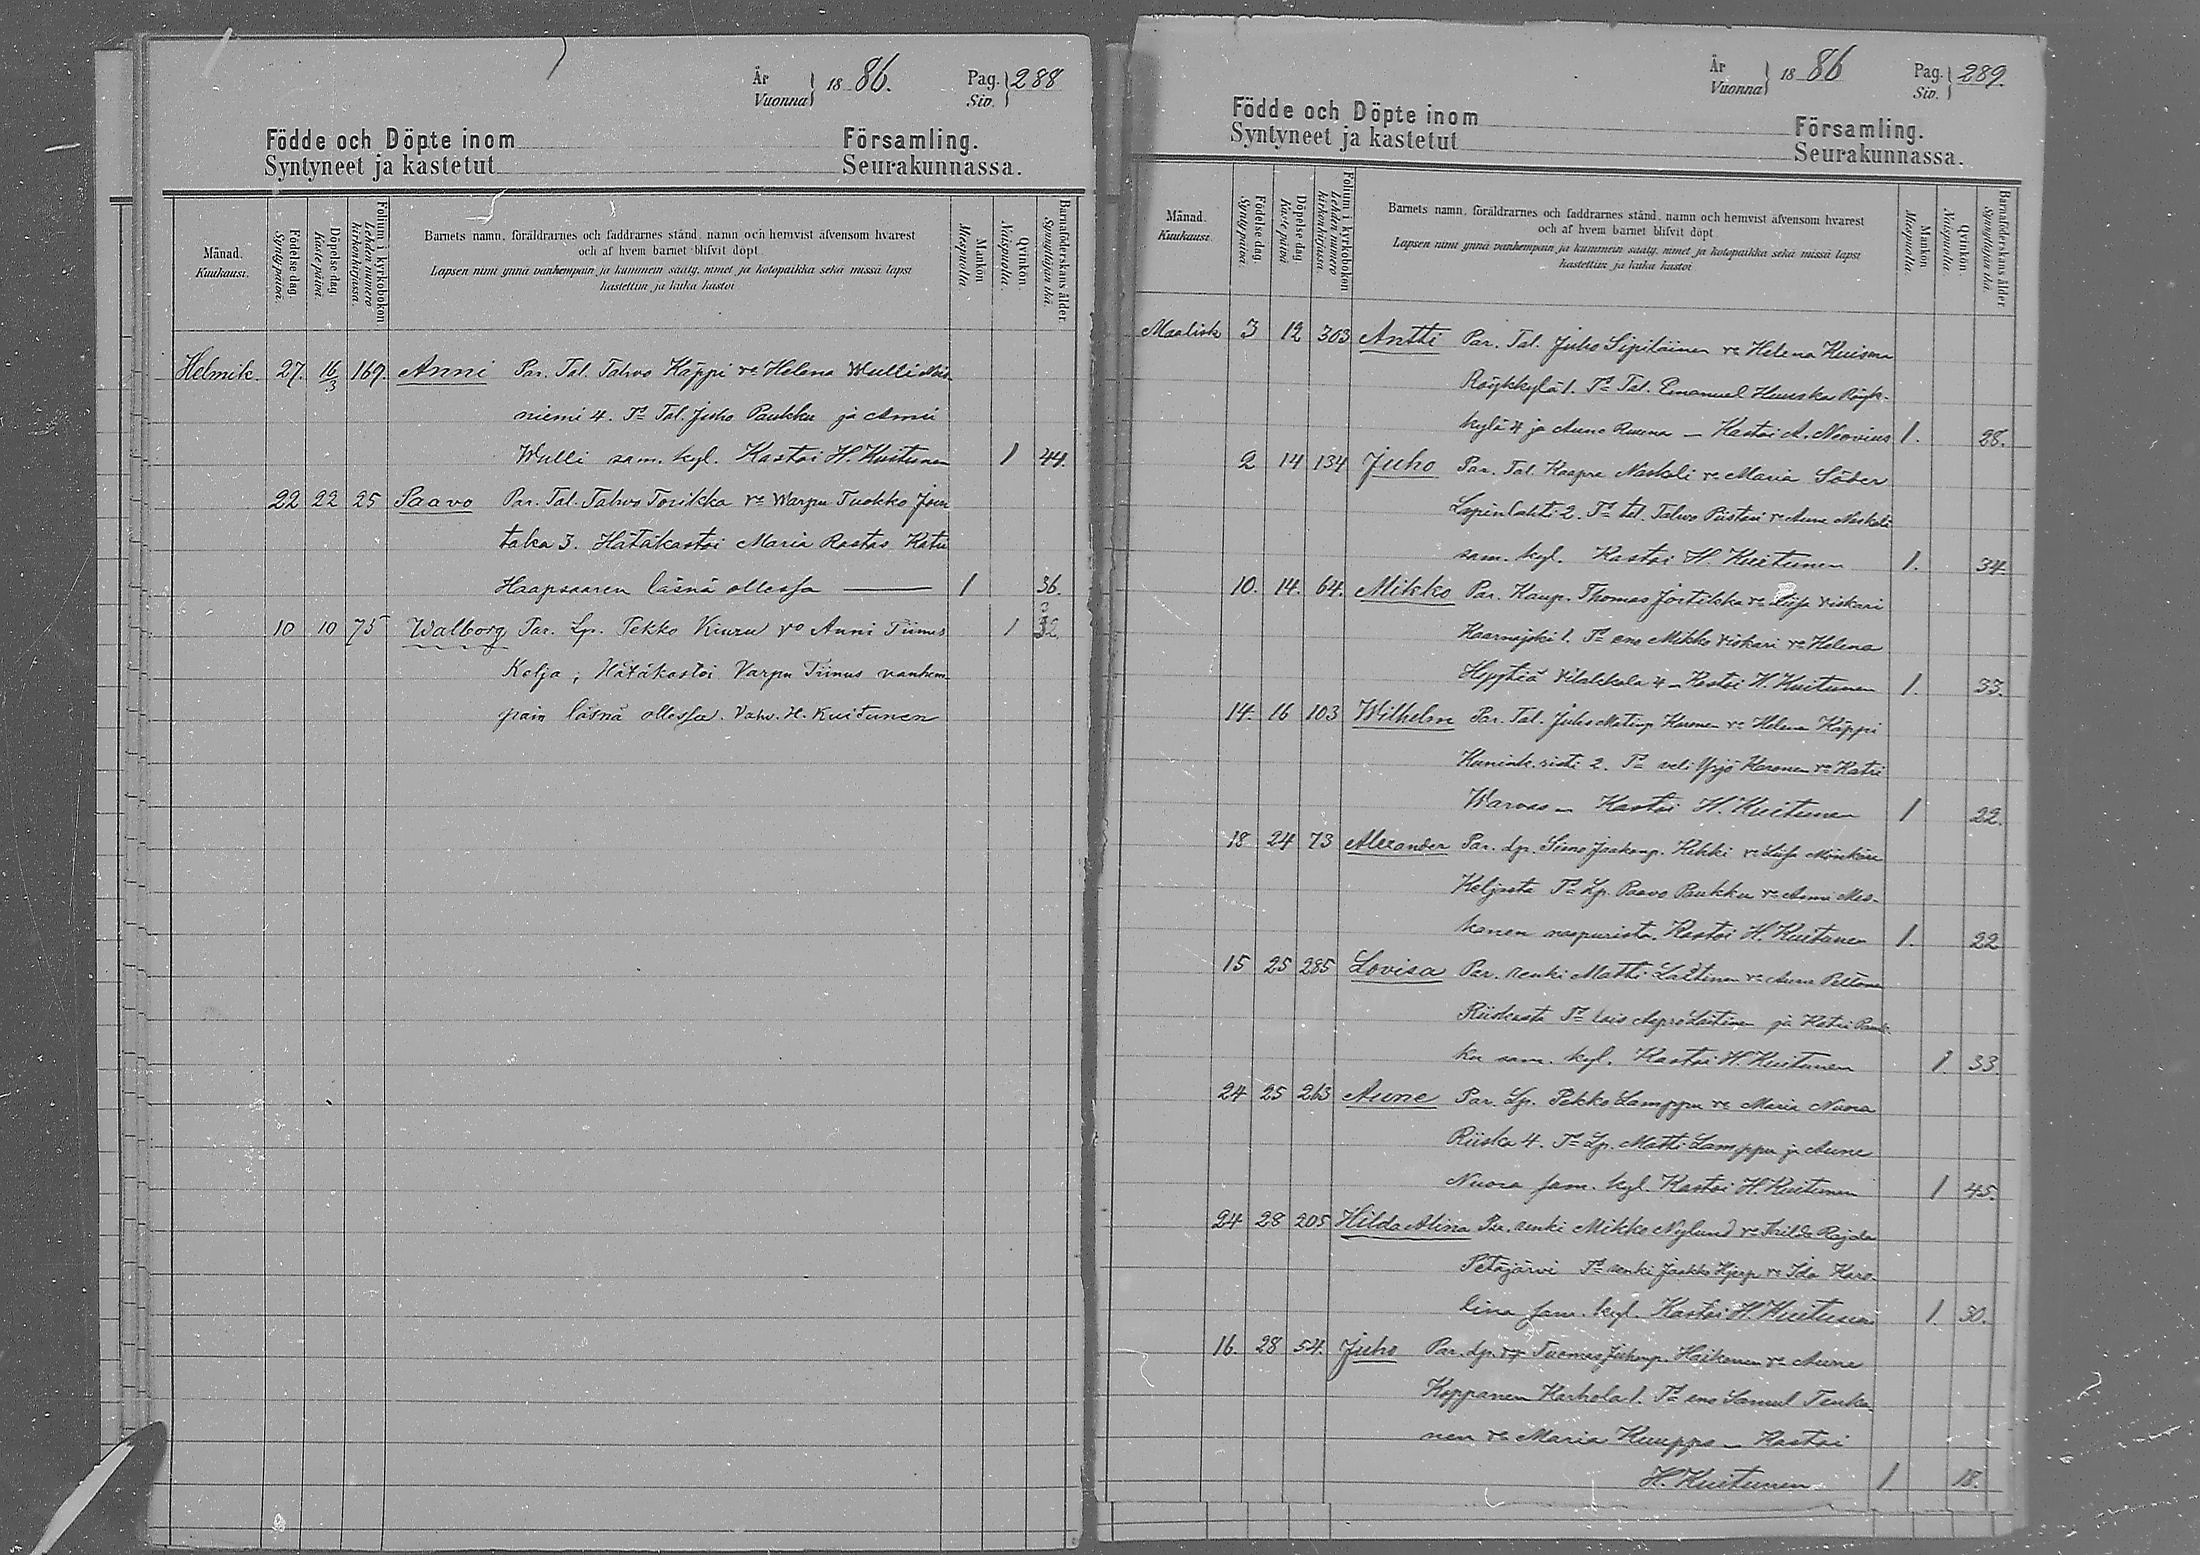 År
Vuonna 18 86. Pag. Siv. 288
Födde och Döpte inom Församling.
Syntyneet ja kastetut Seurakunnassa.
Månad. Kuukausi.
Födelse-dag. Syntypäivä.
Döpelse-dag. Kastepäivä.
Folium i kyrkoboken Lehden numero kirkonkirjassa.
Barnets namn, föräldrarnes och faddrarnes stånd, namn och hemvist äfvensom hvarest
och af hvem barnet blifvit döpt.
Lapsen nimi ynnä vanhempain ja kummein sääty, nimet ja kotopaikka sekä missä lapsi
kastettiin ja kuka kastoi
Mankön Miespuolia.
Qvinkön. Naispuolia.
Barnaföderskans ålder. Synnyttäjän ikä.
Helmik. 27. 16/3 169. Anni Par. Tal. Tahvo Käppi vo Helena Wulli
niemi 4. Td Tal. Juho Paukku ja Anni
Wulli sam. kyl. Kastoi H. Kuitunen 1 44.
22 22 25 Paavo Par. Tal. Tahvo Torikka vo Warpu Tuokko Joen
taka 3. Hätäkastoi Maria Rastas Katri
Haapsaaren läsnä ollessa 1 36.
10 10 75 Walborg Par. Lp. Pekko Kiuru vo Anni Tiimus 1 32
Kelja; Hätäkastoi Varpu Tiimus vanhem
pain läsnä ollessa. Vahv. H. Kuitunen
År
Vuonna 18 86 Pag. Siv. 289.
Födde och Döpte inom Församling.
Syntyneet ja kastetut Seurakunnassa.
Månad. Kuukausi.
Födelse-dag. Syntypäivä.
Döpelse-dag. Kastepäivä.
Folium i kyrkoboken Lehden numero kirkonkirjassa.
Barnets namn, föräldrarnes och faddrarnes stånd, namn och hemvist äfvensom hvarest
och af hvem barnet blifvit döpt.
Lapsen nimi ynnä vanhempain ja kummein sääty, nimet ja kotopaikka sekä missä lapsi
kastettiin ja kuka kastoi
Mankön Miespuolia.
Qvinkön. Naispuolia.
Barnaföderskans ålder. Synnyttäjän ikä.
Maalisk 3 12 303 Antti Par. Tal. Juho Sipiläinen vo Helena Kuisma
Röykkylä 1. Td Tal. Emanuel Huuska Röyk-
kylä 4 ja Aune Ruuna – Kastoi A. Neovius 1. 28.
2 14 134 Juho Par. Tal. Kaapre Naskali vo Maria Säder
Lapinlahti 2. Td tal. Tahvo Piistari vo Aune Naskali
sam. kyl. Kastoi H. Kuitunen 1. 34.
10. 14. 64. Mikko Par. Kaup. Thomas Jortikka vo Liisa Viskari
Haarnajoki 1. Td eno Mikko Viskari vo Helena
Hyytiä Vilakkala 4 – Kastoi H. Kuitunen 1. 33.
14. 16 103 Wilhelm Par. Tal. Juho Matinp. Karonen vo Helena Käppi
Kunink.risti 2. Td veli Yrjö Karonen vo Katri
Warvas – Kastoi H. Kuitunen 1 22.
18 24 73 Alexander Par. Lp. Simo Jaakonp. Kekki vo Liisa
Keljasta Td Lp. Paavo Paukku vo Anna Mes-
kanen naapurista. Kastoi H. Kuitunen 1. 22
15 25 285 Lovisa Par. renki Matti Laitinen vo Aune Peltonen
Riiskasta Td lois Aapro Laitinen ja Katri Pauk-
ku sam. kyl. Kastoi H. Kuitunen 1. 33
24 25 263 Aune Par. Lp. Pekko Lamppu vo Maria Nuora
Riiska 4. Td Lp. Matti Lamppu ja Aune
Nuora sam. kyl. Kastoi H. Kuitunen 1 45.
24 28 205 Hilda Alina Par. renki Mikko Nylund vo Hilda
Petäjärvi Td renki Jaakko vo Ida Karo-
lina sam. kyl. Kastoi H Kuitunen 1. 30.
16. 28 54. Juho Par. Lp. Tuomas Juhonp. Haikonen vo Aune
Koppanen Karhola 1. Td eno Samuel Teuka
nen vo Maria Kuuppo – Kastoi
H. Kuitunen 1 18.